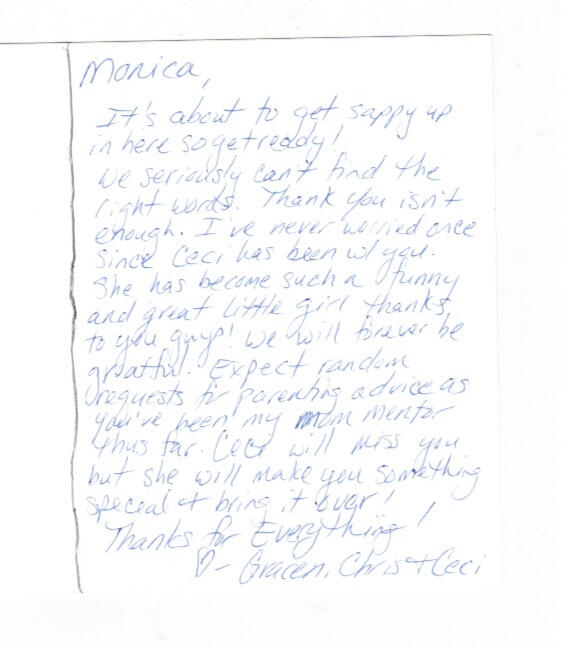 Monica,
It's about to get sappy up
in here so get ready!
We seriously can't find the
right words. Thank you isn't
enough. I've never worried once
since Ceci has been w/ you.
She has become such a funny
and great little girl thanks
to you guys! We will forever be
greatful. Expect random
requests for parenting advice as
you've been my mom mentor
thus far. Ceci will miss you
but she will make you something
special + bring it over!
Thanks for Everything!
♡- Gracen, Chris + Ceci